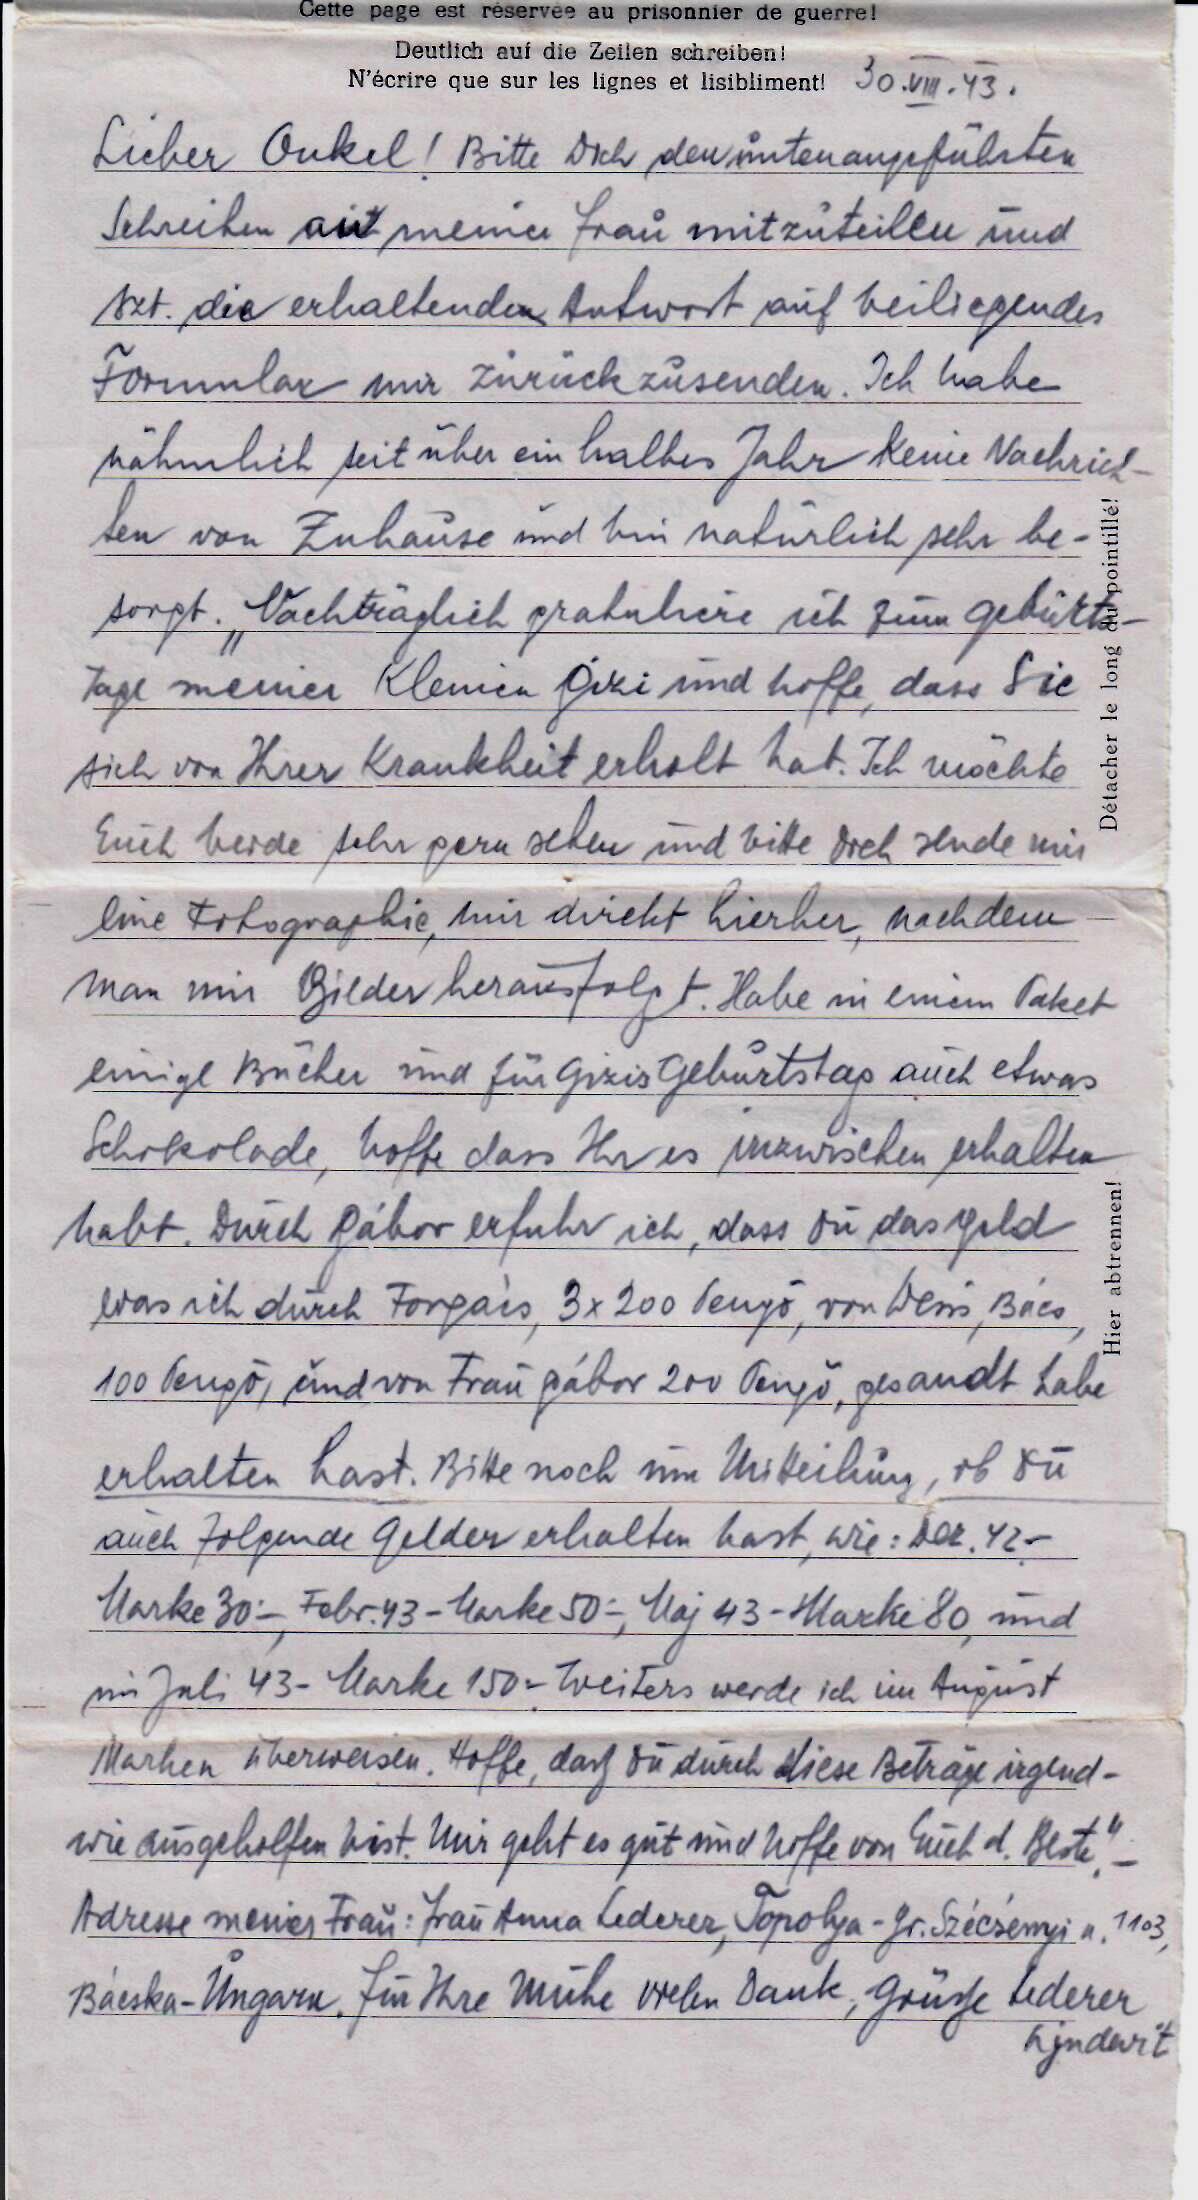 Cette page est réservée au prisonnier de guerre!
Deutlich auf die Zeilen schreiben!
N'écrire que sur les lignes et lisibliment! 30.VIII.43.
Lieber Onkel! Bitte Dich den untenangeführten
Schreiben meiner Frau mitzuteilen und
szt. die erhaltenden Antwort auf beiliegendes
Formular mir zurückzusenden. Ich habe
nähmlich seit über ein halbes Jahr keine Nachrich-
ten von Zuhause und bin natürlich sehr be-
sorgt. „Nachträglich gratuliere ich zum Geburts-
tage meiner Kleinen Gizi und hoffe, dass Sie
sich von Ihrer Krankheit erholt hat. Ich möchte
Euch beide sehr gern sehen und bitte Dich sende mir
eine Fotographie, mir direkt hierher, nachdem
man mir Bilder herausfolgt. Habe in einem Paket
einige Bücher und für Gizis Geburtstag auch etwas
Schokolade, hoffe dass Ihr es inzwischen erhalten
habt. Durch Gábor erfuhr ich, dass Du das Geld
was ich durch Forgács, 3x200 Pengö, von Weiss, Bács,
100 Pengö, und von Frau Gábor 200 Pengö, gesandt habe
erhalten hast. Bitte noch um Mitteilung, ob Du
auch folgende Gelder erhalten hast, wie: Dez. 42-
Marke 30-, Febr. 43-Marke 50-, Maj 43-Marke 80, und
im Juli 43- Marke 150- Weiters werde ich im August
Marken überweisen. Hoffe, daß Du durch diese Beträge irgend-
wie ausgeholfen bist. Mir geht es gut und hoffe von Euch d. Beste."-
Adresse meiner Frau: Frau Anna Lederer, Topolya-Gr. Szécsényi u. 1103,
Bácska-Ungarn. Für Ihre Mühe vielen Dank, Grüße Lederer
Détacher le long du pointillé!
Hier abtrennen!